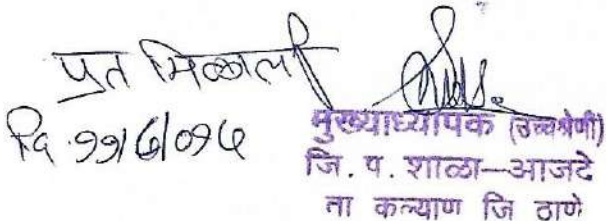 प्रत मिळाली
दि. ११/७/०१७
मुख्याध्यापक (उच्चश्रेणी)
जि. प. शाळा—आजदे
ता कल्याण जि ठाणे